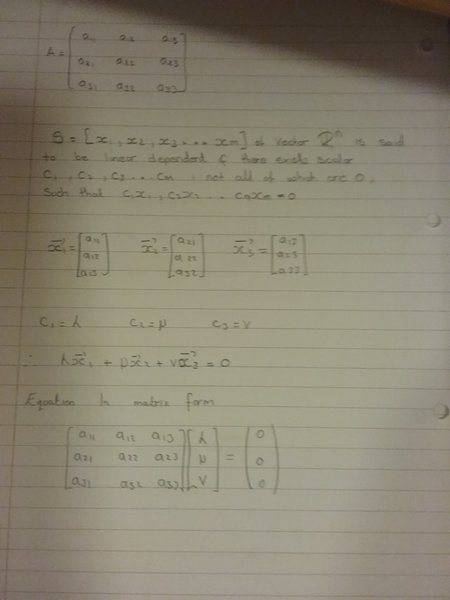 A = [ a11 a12 a13
a21 a22 a23
a31 a32 a33 ]
S = [x1, x2, x3 ... xm] of vector R^n is said
to be linear dependent if there exists scalar
C1, C2, C3 ... Cm, not all of which are 0,
Such that C1x1, C2x2 ... Cnxm = 0
x1 = [ a11 a12 a13 ] x2 = [ a21 a22 a32 ] x3 = [ a13 a23 a33 ]
C1 = λ C2 = μ C3 = v
∴ λx1 + μx2 + vx3 = 0
Equation In matrix form
[ a11 a12 a13 ] [ λ ] = ( 0 )
[ a21 a22 a23 ] [ μ ] ( 0 )
[ a31 a32 a33 ] [ v ] ( 0 )